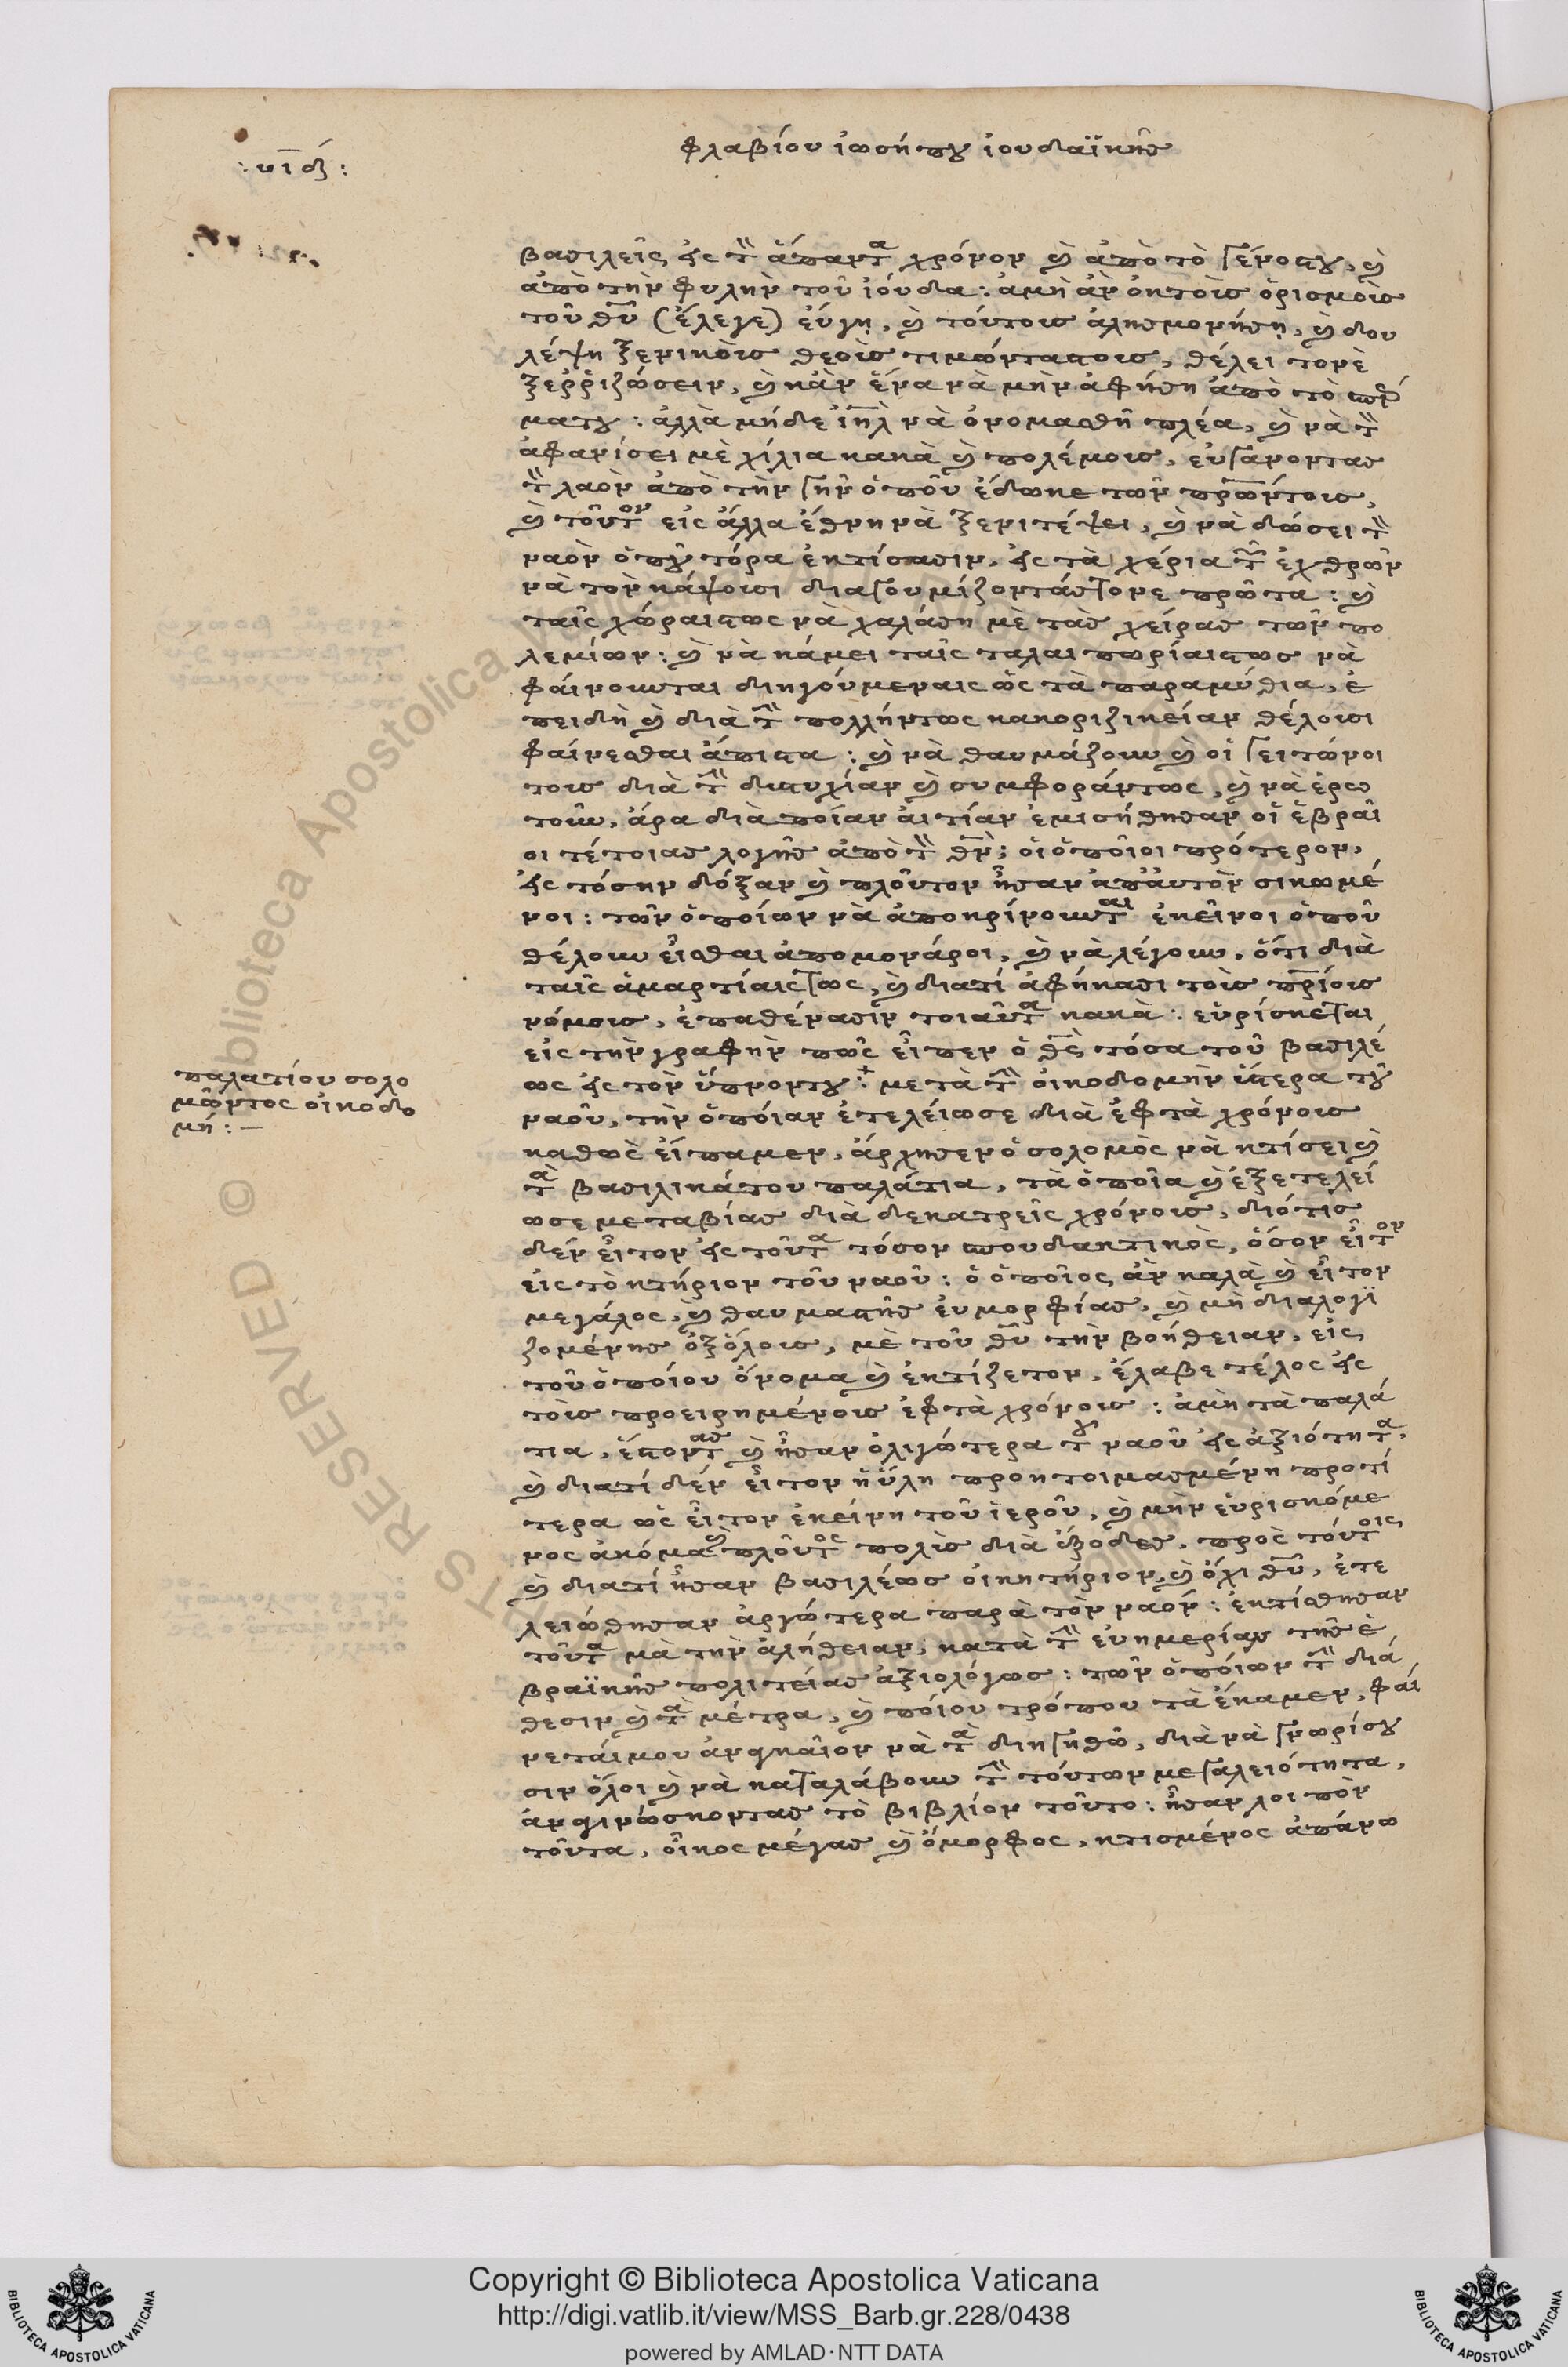 φλαβίου ἰωσήπου ἰουδαϊκῆς
:υιδ:
βασιλεῖς εἰς τὸν ἅπαντα χρόνον καὶ ἀπὸ τὸ γένοςτου, καὶ
ἀπὸ τὴν φυλὴν τοῦ ἰούδα: ἀμὴ ἂν ὀκ τοὺς ὁρισμοὺς
τοῦ θῦ (ἔλεγε) εὔγῃ, καὶ τούτους ἀλησμονήσῃ, καὶ δου
λέψῃ ξενικοὺς θεοὺς τιμώντας τους, θέλει τονὲ
ξερριζώσειν, καὶ κἂν ἕνα νὰ μὴν ἀφήσῃ ἀπὸ τὸ σπέρ
ματου: ἀλλὰ μήδε ἰηλ νὰ ὀνομασθῆ πλέα, καὶ νὰ τὸν
ἀφανίσει μὲ χίλια κακὰ καὶ πολέμους, εὐγάνοντας
τὸν λαὸν ἀπὸ τὴν γῆν ὁποῦ ἔδωκε τῶν πρωντους,
καὶ τοῦτον εἰς ἄλλα ἔθνη νὰ ξενιτέψει, καὶ νὰ δώσει τὸν
ναὸν ὁποῦ τόρα ἐκτίσασιν, εἰς τὰ χέρια τῶν ἐχθρῶν
νὰ τὸν κάψουσι διαγουμίζοντάς τονε πρῶτα: καὶ
ταῖς χώραις τως νὰ χαλάση μὲ τὰς χεῖρας τῶν πο
λεμίων: καὶ νὰ κάμει ταῖς ταλαιπωρίαις τως νὰ
φαίνουνται διηγούμεναις ὡς τὰ παραμύθια, ἐ
πειδὴ καὶ διὰ τὴν πολλήντως κακοριζικείαν θέλουσι
φαίνεσθαι ἄπιστα: καὶ νὰ θαυμάζουν καὶ οἱ γειτώνοι
τους διὰ τὴν δυστυχίαν καὶ συμφοράντως, καὶ νὰ ἐρω
τοῦν, ἆρα διὰ ποίαν αἰτίαν ἐμισήθησαν οἱ ἑβραῖ
οι τέτοιας λογῆς ἀπὸ τὸν θν; οἱ ὁποῖοι πρότερον,
εἰς τόσην δόξαν καὶ πλοῦτον ἦσαν ἀπ' αὐτὸν σικωμέ
νοι: τῶν ὁποίων νὰ ἀποκρίνουνται ἐκεῖνοι ὁποῦ
θέλουν εἶσθαι ἀπομονάροι, καὶ νὰ λέγουν, ὅτι διὰ
ταῖς ἁμαρτίαις τως, καὶ διατί ἀφήκασι τοὺς πρίους
νόμους, ἐπαθένασιν τοιαῦτα κακὰ: εὑρίσκεται
εἰς τὴν γραφὴν πῶς εἶπεν ὁ θς τόσα τοῦ βασιλέ
ως εἰς τὸν ὕπνοντου: μετὰ τὴν οἰκοδομὴν ὕστερα τοῦ
ναοῦ, τὴν ὁποίαν ἐτελείωσε διὰ ἑφτὰ χρόνους
καθὼς εἴπαμεν, ἄρχησεν ὁ σολομὸς νὰ κτίσει καὶ
τὰ βασιλικάτου παλάτια, τὰ ὁποῖα καὶ ἐξετελεί
ωσε μεταβίας διὰ δεκατρεῖς χρόνους, διότις
δὲν εἶτον εἰς τοῦτα τόσον σπουδακτικὸς, ὅσον εἶτον
εἰς τὸ κτήριον τοῦ ναοῦ: ὁ ὁποῖος ἂν καλὰ καὶ εἶτον
μεγάλος, καὶ θαυμαστῆς εὐμορφίας, καὶ μὴ διαλογι
ζομένης ὀξόλους, μὲ τοῦ θῦ τὴν βοήθειαν, εἰς
τοῦ ὁποίου ὄνομα καὶ ἐκτίζετον, ἔλαβε τέλος εἰς
τοὺς προειρημένους ἑφτὰ χρόνους: ἀμὴ τὰ παλά
τια, ἔστοντας καὶ ἦσαν ὀλιγώτερα τοῦ ναοῦ εἰς ἀξιότητα,
καὶ διατί δὲν εἶτον ἡ ὕλη προητοιμασμένη προτί
τερα ὡς εἶτον ἐκείνη τοῦ ἱεροῦ, καὶ μὴν εὑρισκόμε
νος ἀκόμα καὶ πλοῦτος πολὺς διὰ ἔξοδες, πρὸς τούτοις
καὶ διατί ἦσαν βασιλέως οἰκητήριον, καὶ ὄχι θῦ, ἐτε
λειώθησαν ἀργώτερα παρὰ τὸν ναόν: ἐκτίσθησαν
τοῦτα μὰ τὴν ἀλήθειαν, κατὰ τὴν εὐημερίαν τῆς ἑ
βραϊκῆς πολιτείας ἀξιολόγως: τῶν ὁποίων τὴν διά
θεσιν καὶ τὰ μέτρα, καὶ ποίου τρόπου τὰ ἔκαμεν, φαί
νεταίμου ἀναγκαῖον νὰ τὰ διηγηθῶ, διὰ νὰ γνωρίσου
σιν ὅλοι καὶ νὰ καταλάβουν τὴν τούτων μεγαλειότητα,
ἀναγινώσκοντας τὸ βιβλίον τοῦτο: ἦσαν λοιπὸν
τοῦτα, οἶκος μέγας καὶ ὄμορφος, κτισμένος ἀπάνω
παλατίου σολο
μῶντος οἰκοδο
μή:—
Copyright © Biblioteca Apostolica Vaticana
http://digi.vatlib.it/view/MSS_Barb.gr.228/0438
powered by AMLAD·NTT DATA